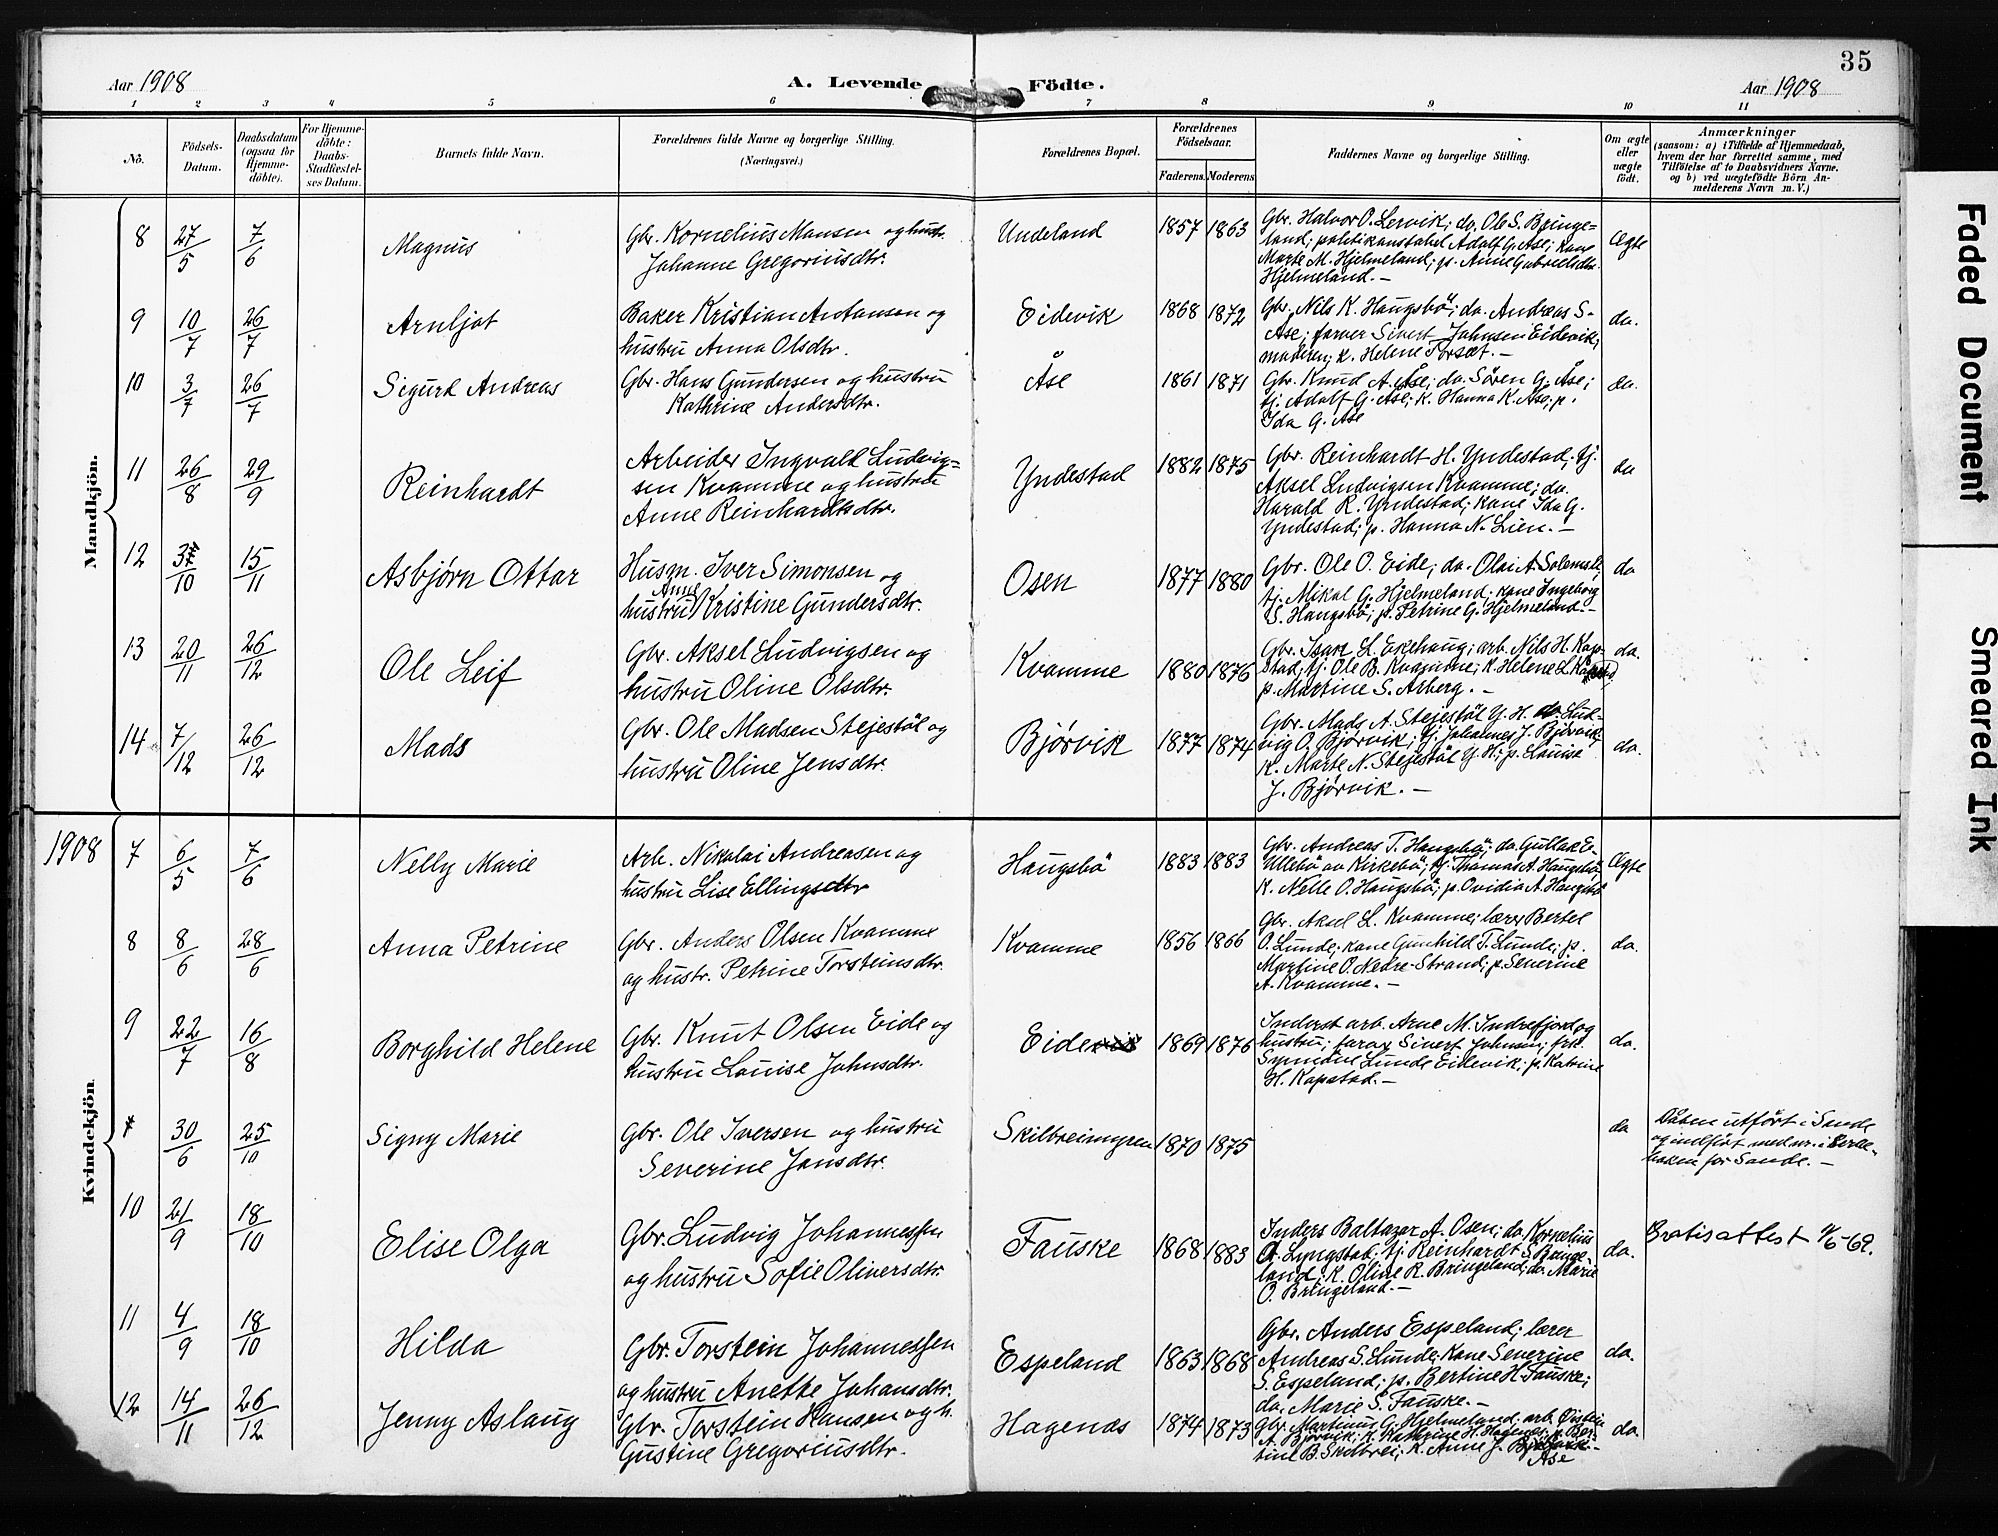 35
Aar 1908
A. Levende Födte.
Aar 1908
1 2 3 4 5 6 7 8 9 10 11
No.
Födsels-
Datum.
Daabsdatum
(ogsaa for
Hjemme-
döbte).
For Hjemme-
döbte:
Daabs-
Stadfæstel-
ses Datum.
Barnets fulde Navn.
Forældrenes fulde Navne og borgerlige Stilling.
(Næringsvei.)
Forældrenes Bopæl.
Forældrenes
Födselsaar.
Faderens. Moderens
Faddernes Navne og borgerlige Stilling.
Om ægte
eller
uægte
födt.
Anmærkninger
(saasom: a) i Tilfælde af Hjemmedaab,
hvem der har forrettet samme, med
Tilföielse af to Daabsvidners Navne.
og b) ved uægtefödte Börn An-
melderens Navn m. V.)
Mandkjön.
8 27/5 7/6 Magnus
Gbr. Kornelius Monsen og hustr.
Johanne Gregoriusdtr.
Undeland 1857 1863
Gbr. Halvor O. Lervik; do. Ole S. Bringe=
land; politikonstabel Adolf G. Åse; kone
Marte M. Hjelmeland; p. Anne Gabrielsdtr.
Hjelmeland. —
Ægte
9 10/7 26/7 Arnljot
Baker Kristian Antonsen og
hustru Anna Olsdtr.
Eidevik 1868 1872
Gbr. Nils K. Haugsbö; do. Andreas S.
Åse; farver Sivert Johnsen Eidevik;
moderen; k. Helene Torset. —
do.
10 3/7 26/7 Sigurd Andreas
Gbr. Hans Gundersen og hustru
Kathrine Andersdtr.
Åse 1861 1871
Gbr. Knud A. Åse; do. Sören G. Åse;
tj. Adolf G. Åse; k. Hanna K. Åse; p.
Ida G. Åse
do.
11 26/8 29/9 Reinhardt
Arbeider Ingvald Ludvig=
sen Kvamme og hustru
Anne Reinhardtsdtr.
Yndestad 1882 1875
Gbr. Reinhardt H. Yndestad; tj.
Aksel Ludvigsen Kvamme; do.
Harald R. Yndestad; kone Ida G.
Yndestad; p. Hanna N. Lien. —
do
12 /10 15/11 Asbjørn Ottar
Husm. Iver Simonsen og
Anne
hustru Kristine Gundersdtr.
Osen 1877 1880
Gbr. Ole O. Eide; do. Olai A.
tj. Mikal G. Hjelmeland; kone Ingeborg
S. Haugsbö; p. Petrine G. Hjelmeland. —
do
13 20/11 26/12 Ole Leif
Gbr. Aksel Ludvigsen og
hustru Oline Olsdtr.
Kvamme 1880 1876
Gbr. Isak L. Erkehaug; arb. Nils H. Kap-
stad; tj. Ole B. Kvamme; k. Helene L.
p. Martine S. Årberg. —
do.
14 7/12 26/12 Mads
Gbr. Ole Madsen Stejestöl og
hustru Oline Jensdtr.
Bjørvik 1877 1874
Gbr. Mads A. Stejestöl Y. H. do. Lud-
vig O. Bjørvik; tj. Johannes J. Bjørvik;
k. Marte N. Stejestöl Y. H.; p. Louise
J. Bjørvik. —
do.
1908
Kvindekjön.
7 6/5 7/6 Nelly Marie
Arb. Nikolai Andreasen og
hustru Lise Ellingsdtr
Haugsbö 1883 1883
Gbr. Andreas T. Haugsbö; do. Gutlak E.
Ullebö av Kirkebö; tj. Thomas A. Haugsbö;
k. Nelle O. Haugsbö; p. Ovidia A. Haugsbö
Ægte
8 8/6 28/6 Anna Petrine
Gbr. Anders Olsen Kvamme
og hustr. Petrine Torsteinsdtr.
Kvamme 1856 1866
Gbr. Aksel L. Kvamme; lærer Bertel
O. Lunde; kone Gunhild T. Lunde; p.
Martine O. Nedre-Strand; p. Severine
A. Kvamme. —
do.
9 22/7 16/8 Borghild Helene
Gbr. Knut Olsen Eide og
hustru Louise Johnsdtr.
Eide 1869 1876
Inderst arb. Arne M. Indrefjord og
hustru; farver Sivert Johnsen; frk.
Synnöve Lunde Eidevik; p. Katrine
H. Kapstad. —
do.
30/6 25/10 Signy Marie
Gbr. Ole Iversen og hustru
Severine Jonsdtr.
Skilbreimyren 1870 1875
do
Dåben utfört i Sande
og indfört med nr. i kirke-
boken for Sande. —
10 21/9 18/10 Elise Olga
Gbr. Ludvig Johannessen
og hustru Sofie Oliversdtr.
Fauske 1868 1883
Inders Baltazar A. Osen; do. Kornelius
A. Lyngstad; tj. Reinhardt S. Bringe-
land; k. Oline R. Bringeland; do. Marie
O. Bringeland. —
do.
Gratisattest 4/6-69.
11 4/9 18/10 Hilda
Gbr. Torstein Johannessen
og hustru Anette Johansdtr.
Espeland 1863 1868
Gbr. Anders Espeland; lærer
Andreas S. Lunde; kone Severine
S. Espeland; p. Bertine H. Fauske;
do. Marie S. Fauske. —
do.
12 14/11 26/12 Jenny Aslaug
Gbr. Torstein Hansen og h.
Gustine Gregoriusdtr.
Hagenes 1874 1873
Gbr. Martinus G. Hjelmeland; arb. Øistein
A. Bjørvik; k. Kathrine H. Hagenes; p. Ber-
tine B. Skilbrei; k. Anne J.
Åse
do
Faded Document
Smeared Ink